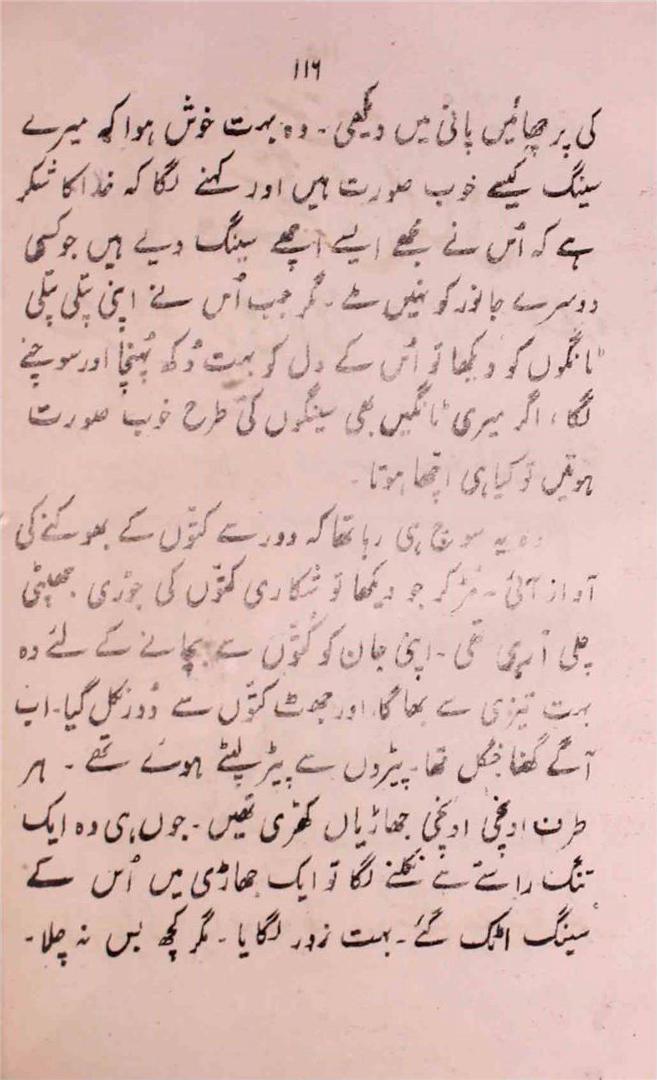 ۱۱۶
کی پرچھائیں پانی میں دیکھی ۔ وہ بہت خوش ہوا کہ میرے
سینگ کیسے خوب صورت ہیں اور کہنے لگا کہ خدا کا شکر
ہے کہ اُس نے مجھے ایسے اچھے سینگ دیے ہیں جو کسی
دوسرے جانور کو نہیں ملے ۔ مگر جب اُس نے اپنی پتلی پتلی
ٹانگوں کو دیکھا تو اُس کے دل کو بہت دُکھ پُہنچا اور سوچنے
لگا ، اگر میری ٹانگیں بھی سینگوں کی طرح خوب صورت
ہوتیں تو کیا ہی اچھا ہوتا ۔
وہ یہ سوچ ہی رہا تھا کہ دور سے کتّوں کے بھوکنے کی
آواز آئی ۔ مُڑ کر جو دیکھا تو شکاری کتّوں کی جوڑی جھپٹی
چلی آ رہی تھی ۔ اپنی جان کو کُتّوں سے بچانے کے لئے وہ
بہت تیزی سے بھاگا اور جھٹ کتّوں سے دُور نکل گیا ۔ اب
آگے گھنا جنگل تھا ۔ پیڑوں سے پیڑ لپٹے ہوئے تھے ۔ ہر
طرف اونچی اونچی جھاڑیاں کھڑی تھیں ۔ جوں ہی وہ ایک
تنگ راستے سے نکلنے لگا تو ایک جھاڑی میں اُس کے
سینگ اٹک گئے ۔ بہت زور لگایا ۔ مگر کچھ بس نہ چلا ۔